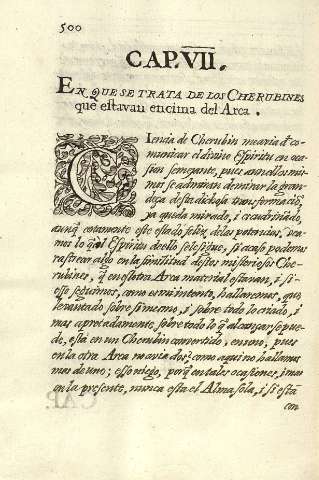 500
CAP. VII.
EN QUE SE TRATA DE LOS CHERUBINES
que estavan encima del Arca.
Ciencia de Cherubin
municar el divino Espiritu en oca
sion semejante, pues aun ellos mis
mis se admiran de mirar la gran
deza desta dichosa transformaciõ,
ya queda mirado, i
aunq̃ estado feliz, de las potencias, vea
mos lo q̃ al Espiritu dello se le sigue, i si acaso podemos
rastrear algo en la similitud destos misteriosos Che
rubines, q̃ en estotra Arca material estavan, i si
esso seguimos, como es mi intento, hallaremos, que
levantado sobre si mesmo, i sobre todo lo criado, i
mas apretadamente, sobre todo lo q̃ alcançar se pue
de, esta en un Cherubin convertido, en uno, pues
en la otra Arca no avia dos? como aqui no hallamos
mas de uno; esso niego, porq̃ en tales ocasiones, i mas
en la presente, nunca esta el Alma sola, i si està
con